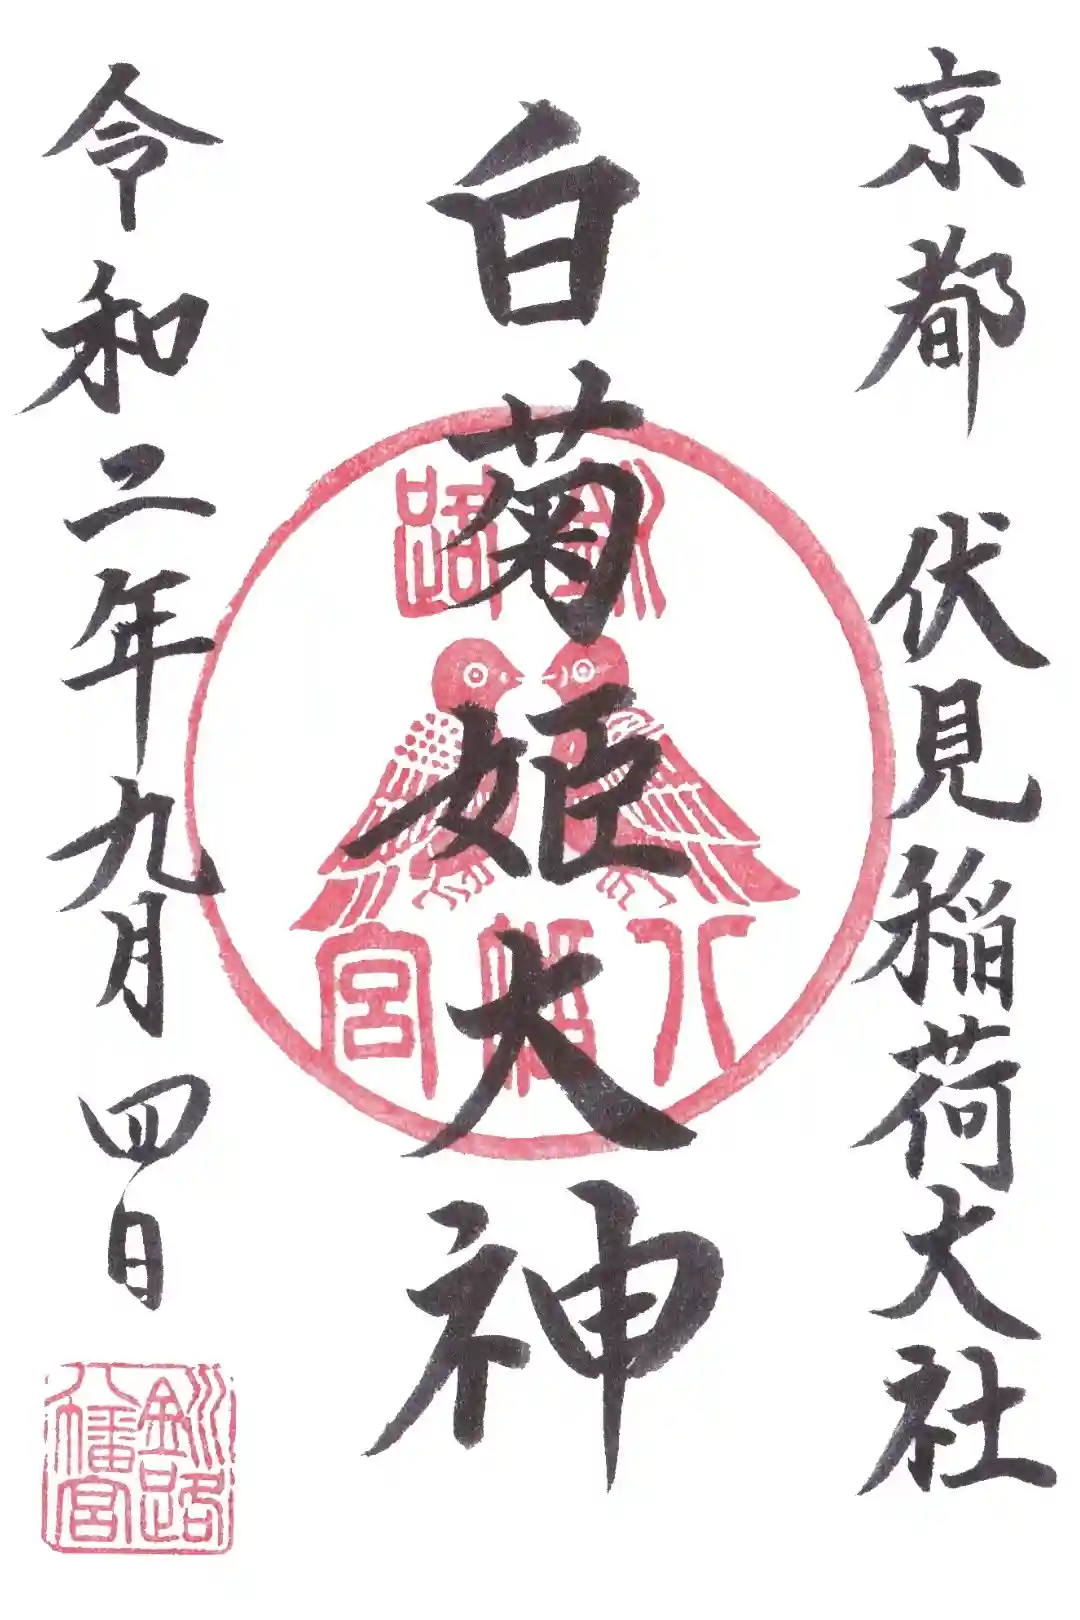 京都 伏見稲荷大社
白菊姫大神
令和二年九月四日
釧路
八幡宮
釧路
八幡宮